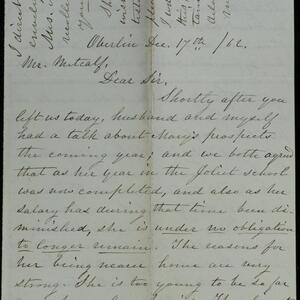 Oberlin Dec. 17th /62.
Mr. Metcalf,
Dear Sir.
Shortly after you
left us today, husband and myself
had a talk about Mary's prospects
the coming year; and we both agreed
that as her year in the Joliet school
was now completed, and also as her
salary has during that time been di-
minished, she is under no obligation
to longer remain. The reasons for
her being nearer home are very
strong. She is too young to be so far